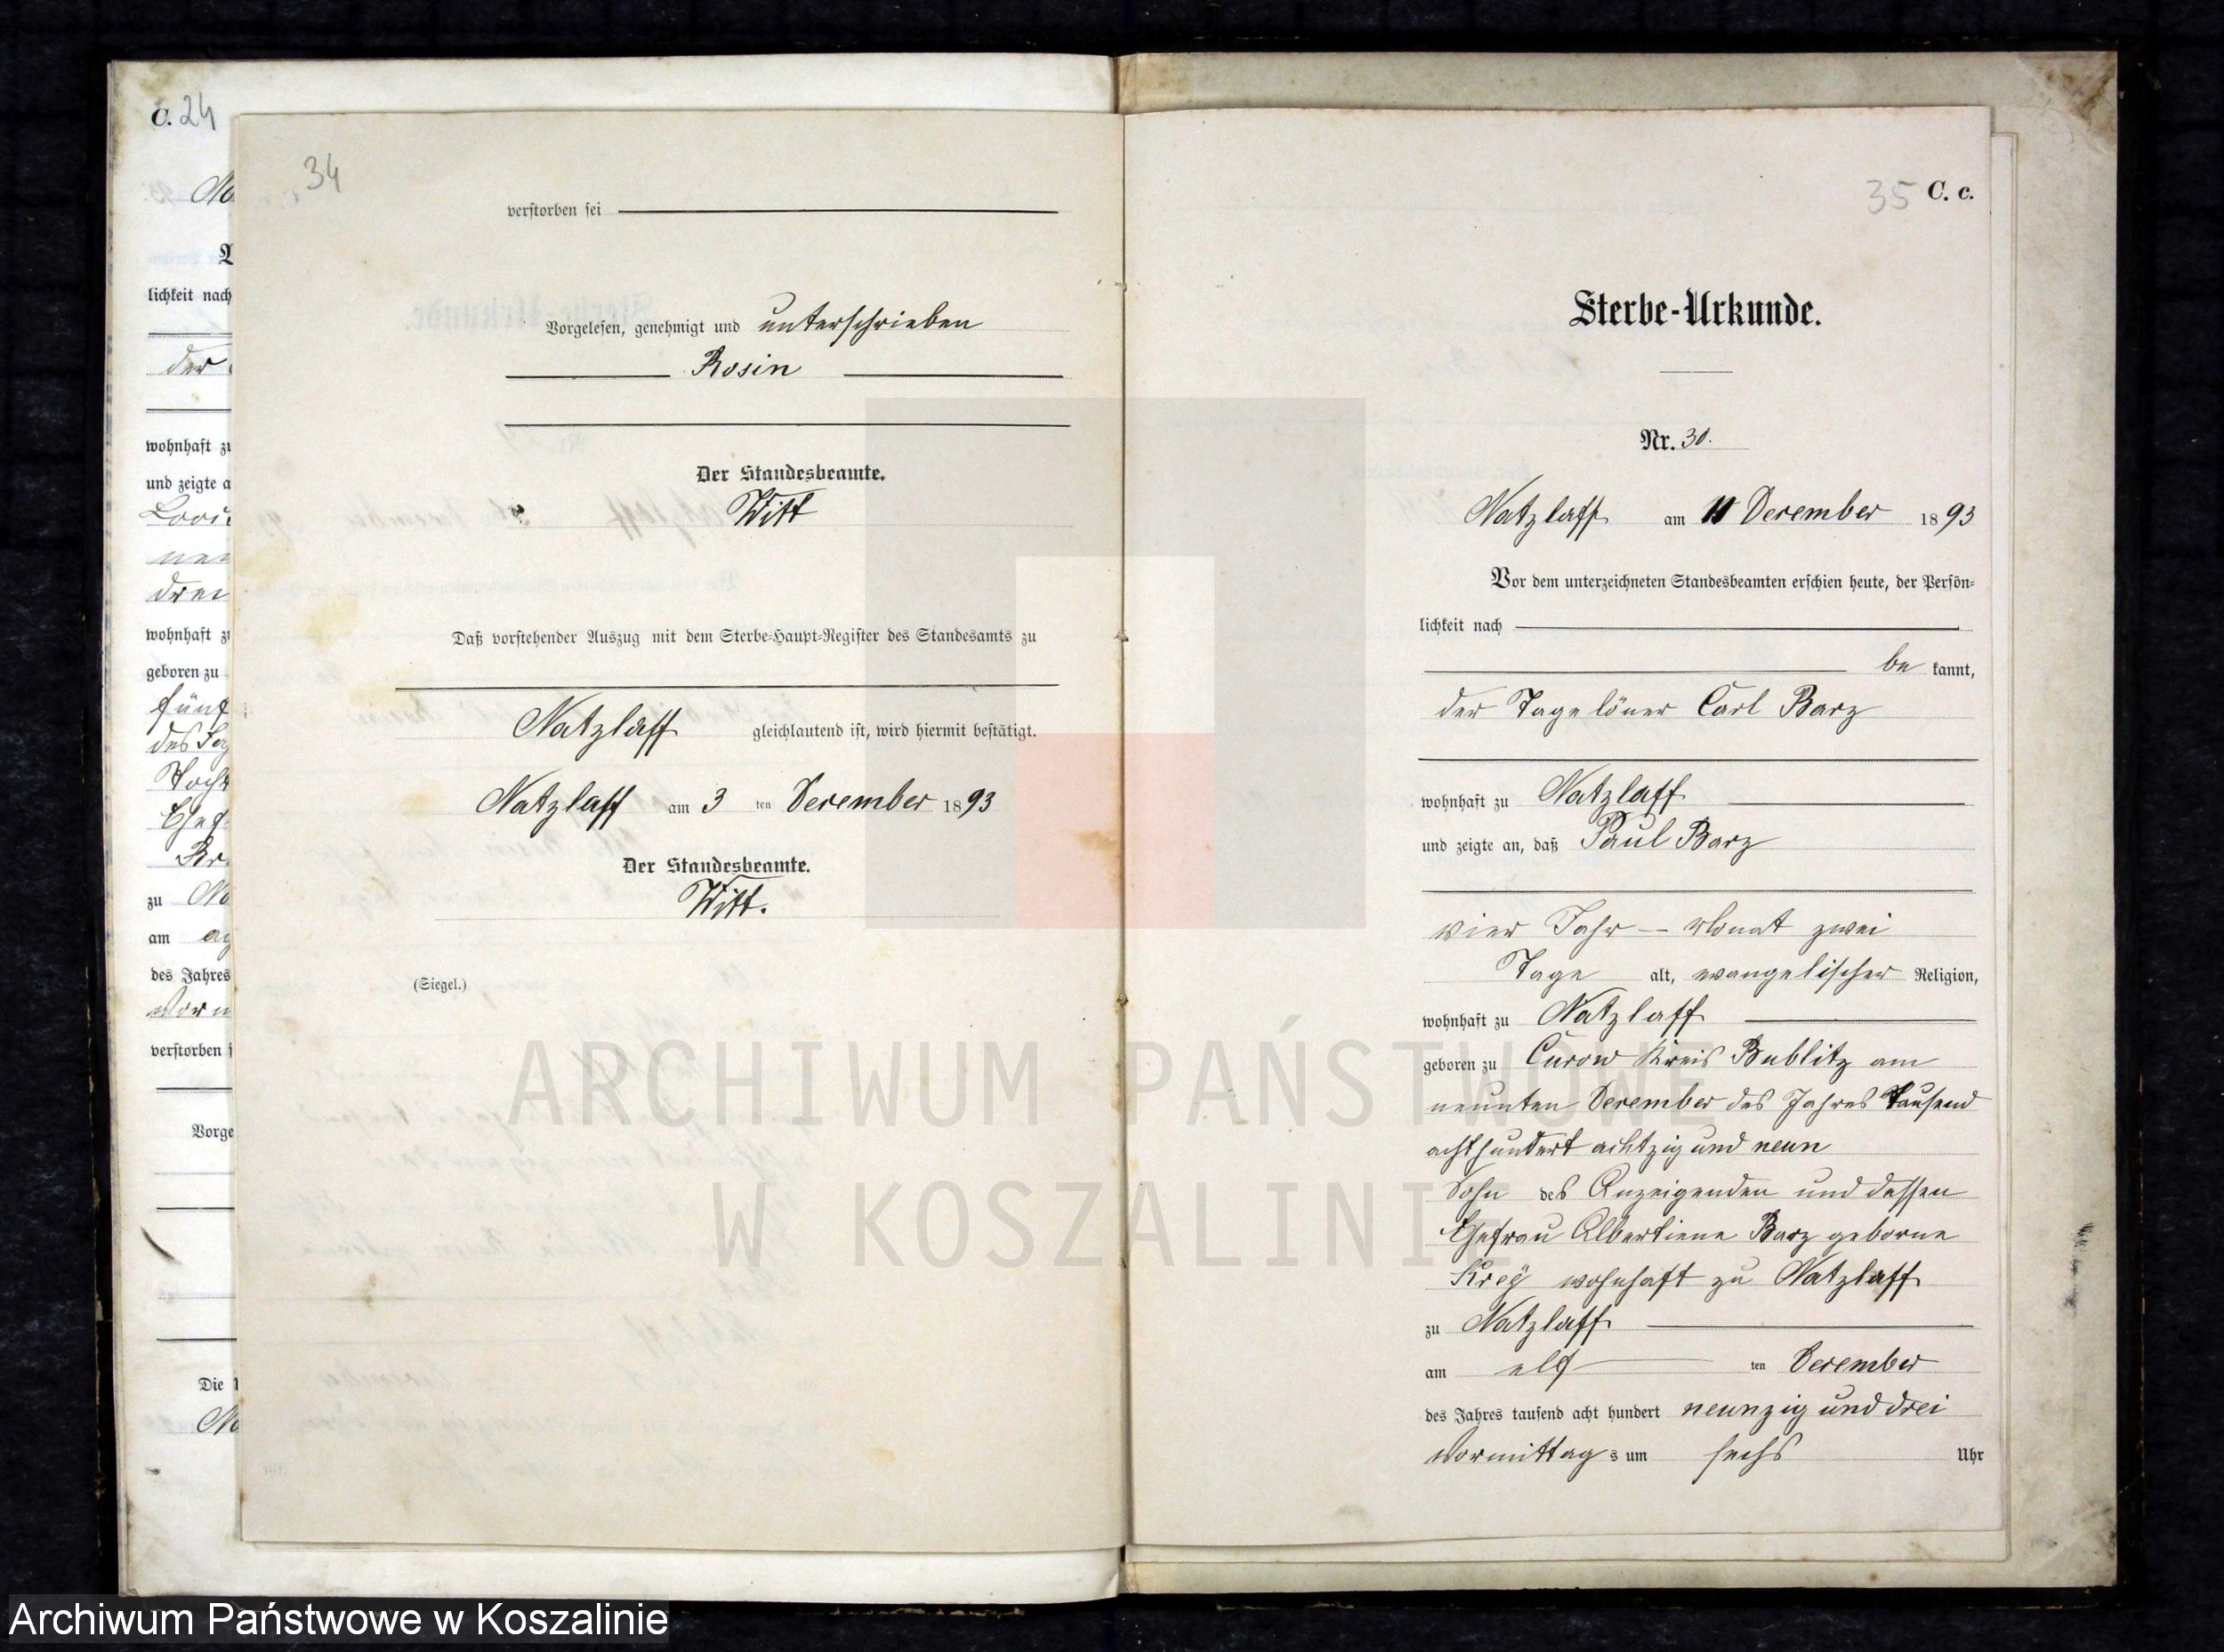 C. 24
No
lichkeit nach
der
wohnhaft zu
und zeigte a
drei
wohnhaft zu
geboren zu
fünf
Toch
Ehef
zu No
am
des Jahres
verstorben
Vorge
Die
No
34
verstorben sei
Vorgelesen, genehmigt und unterschrieben
Rosin
Der Standesbeamte.
Witt
Daß vorstehender Auszug mit dem Sterbe-Haupt-Register des Standesamts zu
Natzlaff gleichlautend ist, wird hiermit bestätigt.
Natzlaff am 3 ten December 1893
Der Standesbeamte.
Witt.
(Siegel.)
35 C. c.
Sterbe-Urkunde.
Nr. 30.
Natzlaff am 11 December 1893
Vor dem unterzeichneten Standesbeamten erschien heute, der Persön-
lichkeit nach
be kannt,
der Tagelöner Carl Barz
wohnhaft zu Natzlaff
und zeigte an, daß Paul Barz
vier Jahr — Monat zwei
Tage alt, evangelischer Religion,
wohnhaft zu Natzlaff
geboren zu Curow Kreis Bublitz am
neunten December des Jahres Tausend
achthundert achtzig und neun
Sohn des Anzeigenden und dessen
Ehefrau Albertiene Barz geborne
Kreÿ wohnhaft zu Natzlaff
zu Natzlaff
am elf ten December
des Jahres tausend acht hundert neunzig und drei
Vormittag s um sechs Uhr
ARCHIWUM PAŃSTWOWE
W KOSZALINIE
Archiwum Państwowe w Koszalinie